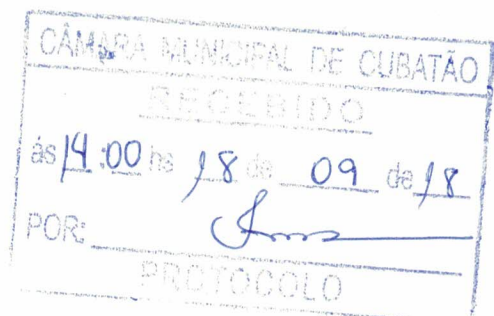 CÂMARA MUNICIPAL DE CUBATÃO
RECEBIDO
às 14:00 hs 18 de 09 de 18
POR:
PROTOCOLO